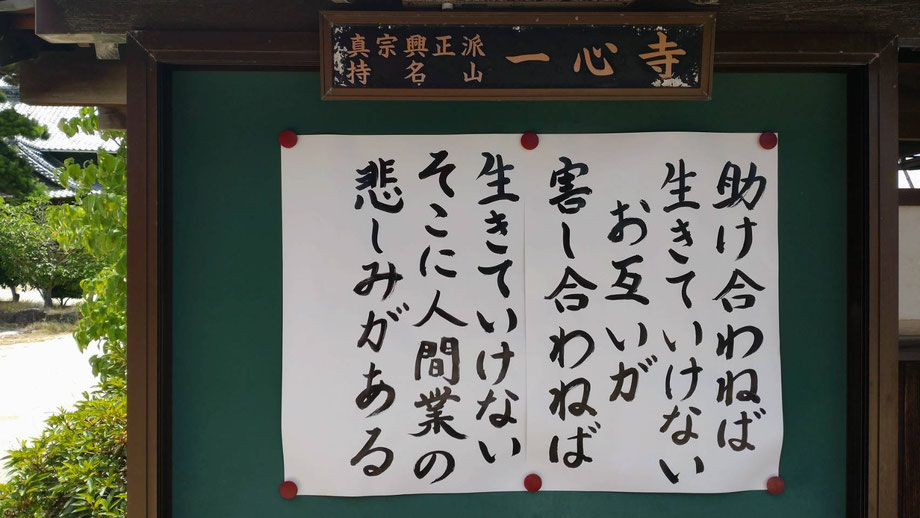 真宗興正派
持名山
一心寺
助け合わねば
生きていけない
お互いが
害し合わねば
生きていけない
そこに人間業の
悲しみがある